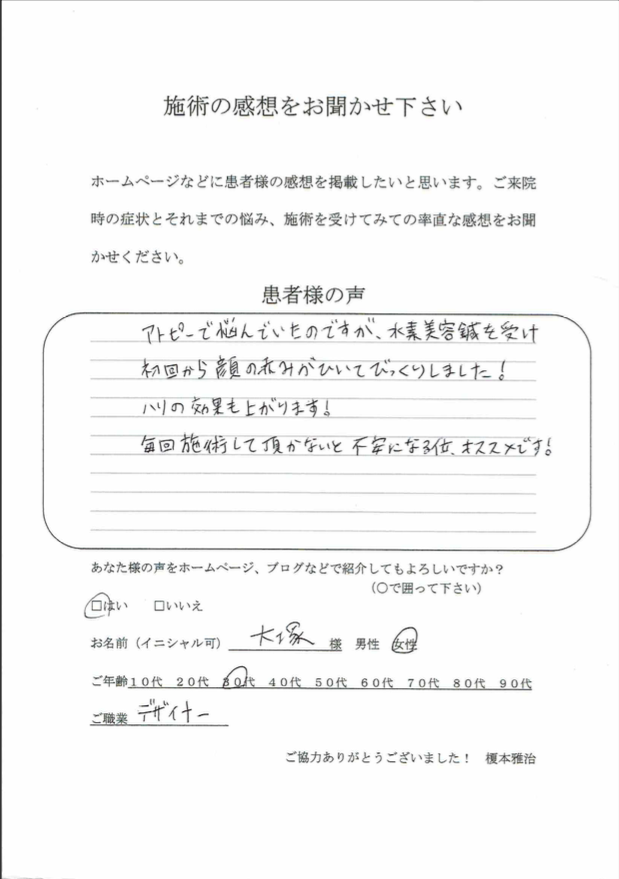 施術の感想をお聞かせ下さい
ホームページなどに患者様の感想を掲載したいと思います。ご来院
時の症状とそれまでの悩み、施術を受けてみての率直な感想をお聞
かせください。
患者様の声
アトピーで悩んでいたのですが、水素美容鍼を受け
初回から顔の赤みがひいてびっくりしました!
ハリの効果も上がります!
毎回施術して頂かないと不安になる位、オススメです!
あなた様の声をホームページ、ブログなどで紹介してもよろしいですか?
(○で囲って下さい)
□はい □いいえ
お名前(イニシャル可) 大塚 様 男性 女性
ご年齢 10代 20代 30代 40代 50代 60代 70代 80代 90代
ご職業 デザイナー
ご協力ありがとうございました! 榎本雅治